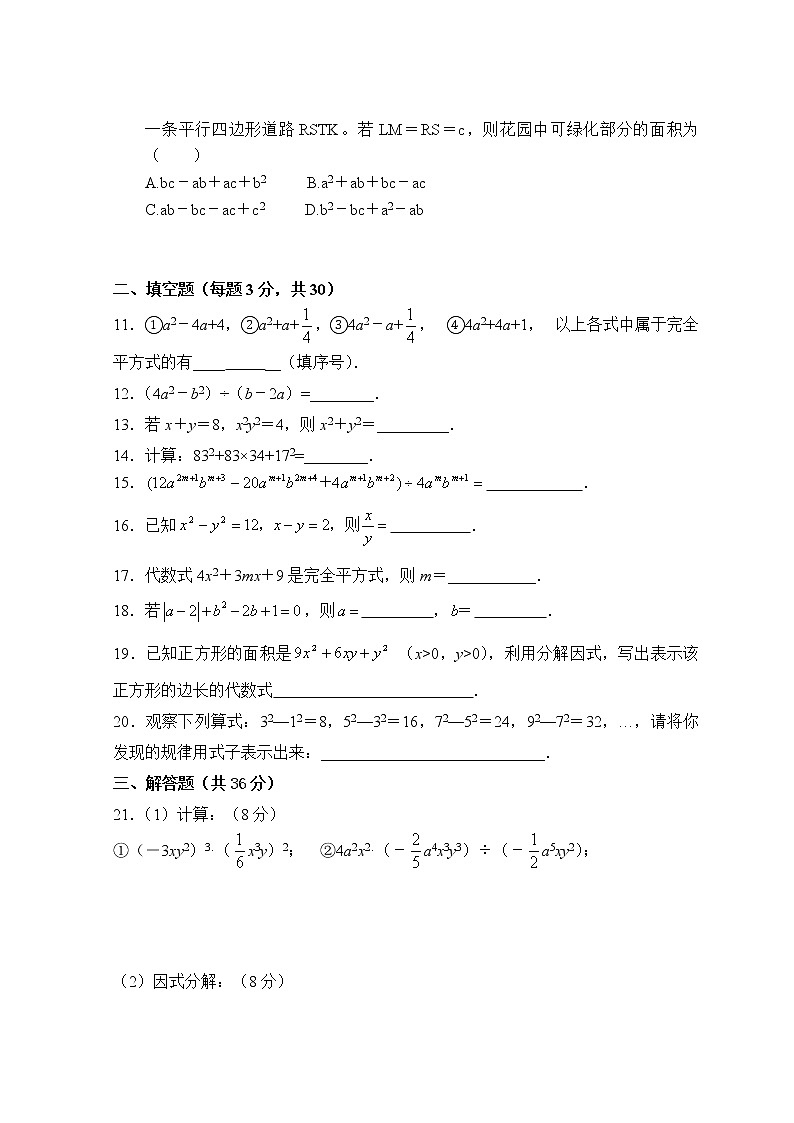 一条平行四边形道路RSTK。若LM=RS=c,则花园中可绿化部分的面积为
(　　)
A.bc-ab+ac+b²　　B.a²+ab+bc-ac
C.ab-bc-ac+c²　　D.b²-bc+a²-ab
二、填空题(每题3分,共30)
11.①a²-4a+4,②a²+a+1/4,③4a²-a+1/4,　④4a²+4a+1,　以上各式中属于完全
平方式的有____ ______(填序号).
12.(4a²-b²)÷(b-2a)=________.
13.若x+y=8,x²y²=4,则x²+y²=_________.
14.计算:83²+83×34+17²=________.
15.(12a^{2m+1}b^{m+3}-20a^{m+1}b^{2m+4}+4a^{m+1}b^{m+2})÷4a^{m}b^{m+1}=____________.
16.已知x²-y²=12,x-y=2,则x/y=__________.
17.代数式4x²+3mx+9是完全平方式,则m=___________.
18.若|a-2|+b²-2b+1=0,则a=_________,b=_________.
19.已知正方形的面积是9x²+6xy+y² (x>0,y>0),利用分解因式,写出表示该
正方形的边长的代数式_________________________.
20.观察下列算式:3²—1²=8,5²—3²=16,7²—5²=24,9²—7²=32,…,请将你
发现的规律用式子表示出来:____________________________.
三、解答题(共36分)
21.(1)计算:(8分)
①(-3xy²)³·(1/6 x³y)²;　②4a²x²·(-2/5 a⁴x³y³)÷(-1/2 a⁵xy²);
(2)因式分解:(8分)